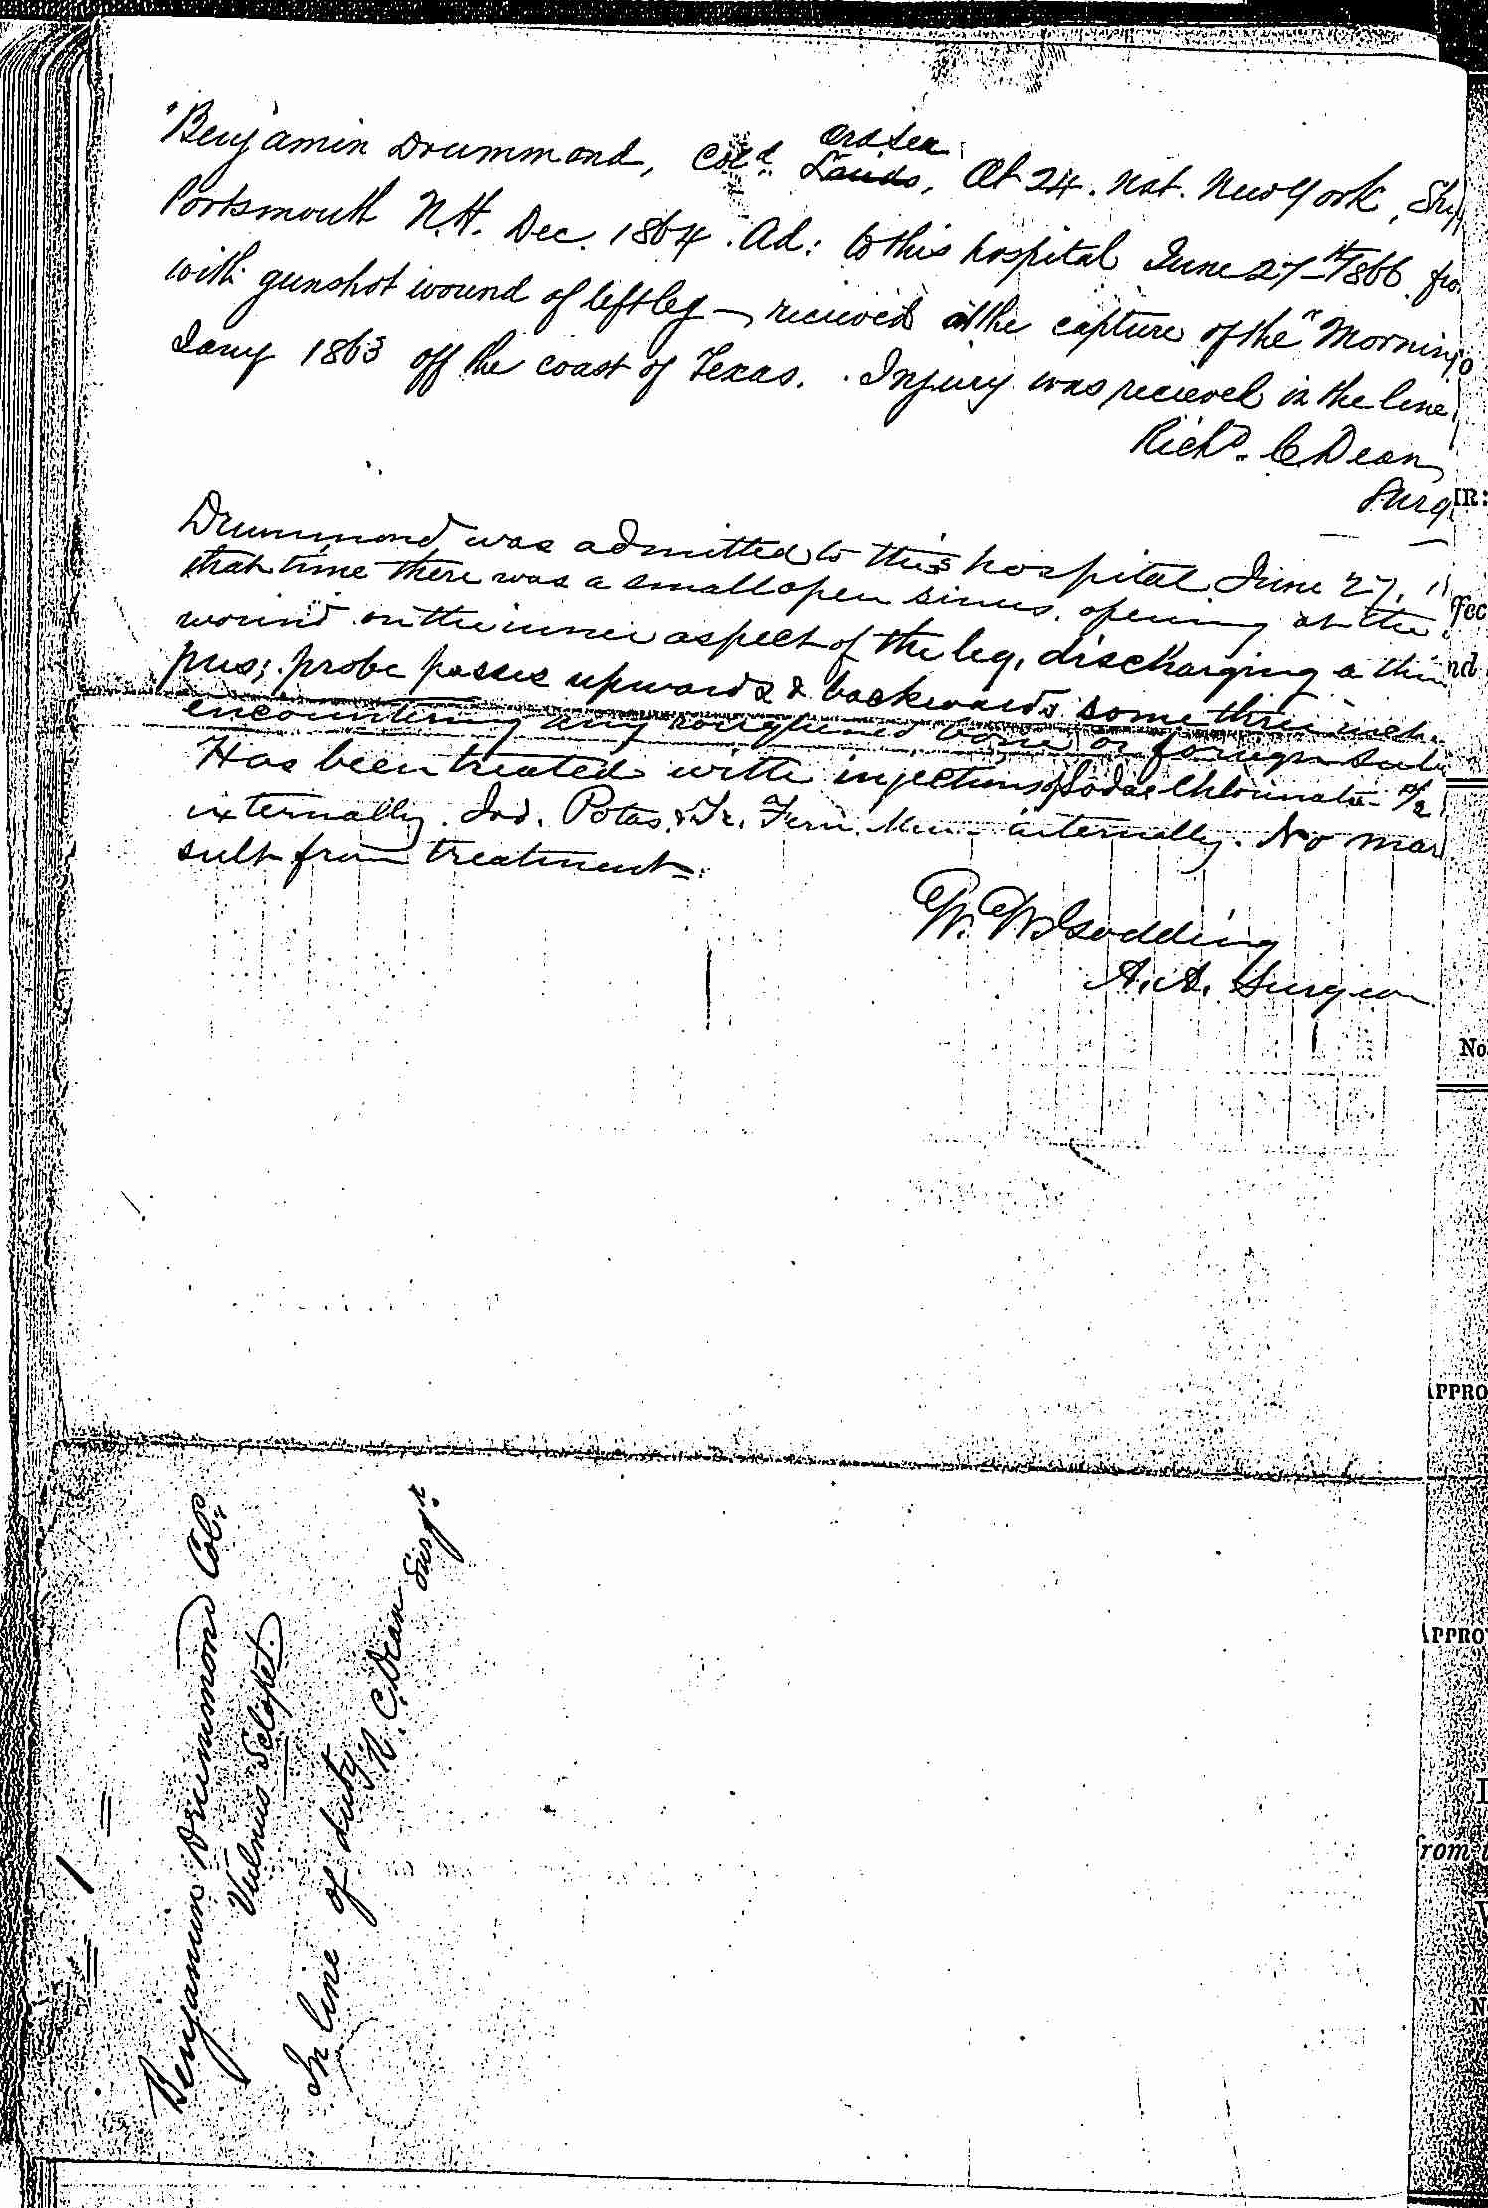 Benjamin Drummond, Cold. Ord Sea Lands, Æt 24. Nat. New York, Ship
Portsmouth N.H. Dec. 1864. Ad: to this hospital June 27th 1866. fro
with gunshot wound of left leg — recieved at the capture of the "Morning
Jany 1863 off the coast of Texas. Injury was recieved in the line
Richd. C Dean
Surg
Drummond was admitted to this hospital June 27, 1
that time there was a small open sinus, opening at the
wound on the inner aspect of the leg, discharging a thin
pus; probe passes upwards & backwards some three inch
encountering any roughened bone or foreign sub
Has been treated with injections of Sodae Chlorinatae
externally. Iod. Potas. & Tr. Ferri. Mur. internally. No mar
sult from treatment.
W. W. Godding
A. A. Surgeon
Benjamin Drummond Col.
Vulnus Sclopet.
In line of duty.
R. C. Dean Surgn.
IR:
fec
nd
No
APPRO
APPRO
from t